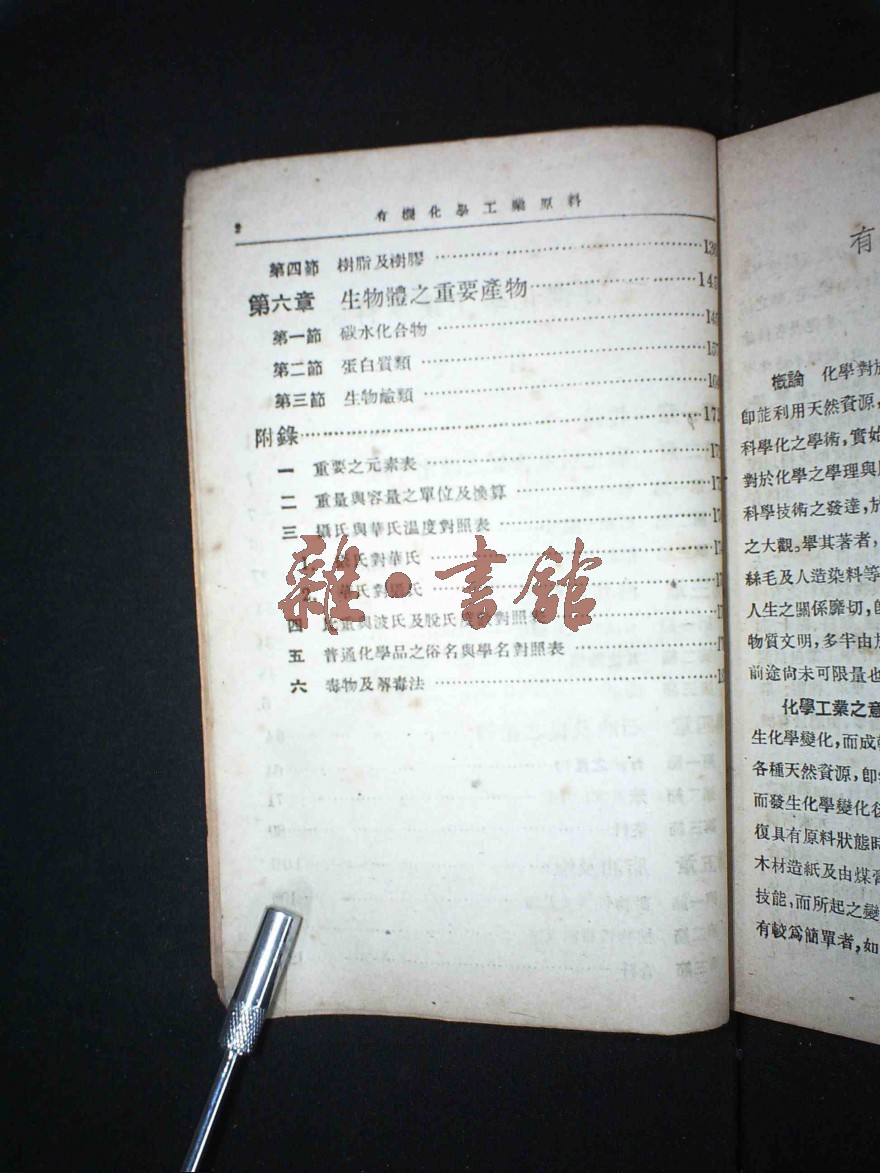 2
有機化學工業原料
第四節 樹脂及樹膠
第六章 生物體之重要產物 145
第一節 碳水化合物
第二節 蛋白質類 157
第三節 生物鹼類
附錄 172
一 重要之元素表
二 重量與容量之單位及換算
三 攝氏與華氏温度對照表
1. 氏對華氏
2. 華氏對 氏
四 與波氏及脫氏 對照表
五 普通化學品之俗名與學名對照表
六 毒物及解毒法
雜·書館
有
概論 化學對於
卽能利用天然資源,
科學化之學術,實始
對於化學之學理與
科學技術之發達,於
之大觀。舉其著者,
絲毛及人造染料等
人生之關係靡切,
物質文明,多半由於
前途尙未可限量也
化學工業之意
生化學變化,而成
各種天然資源,卽
而發生化學變化後
復具有原料狀態時
木材造紙及由煤膏
技能,而所起之變
有較爲簡單者,如